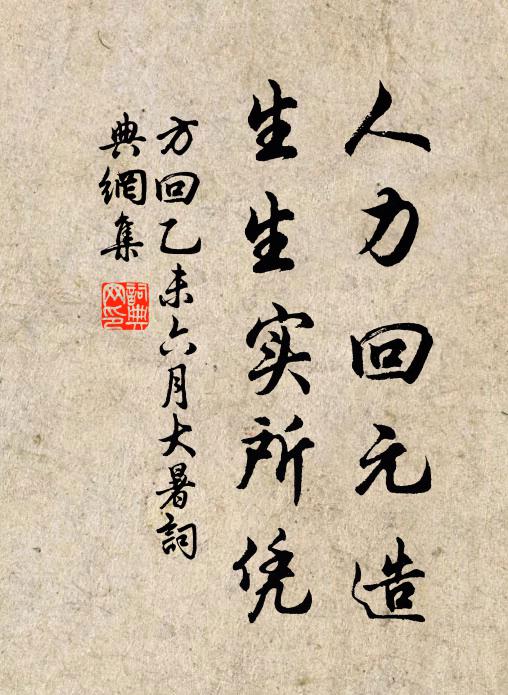 人力回元造
生生实所凭
方回乙未六月大暑詞
典網集
詞典
网印